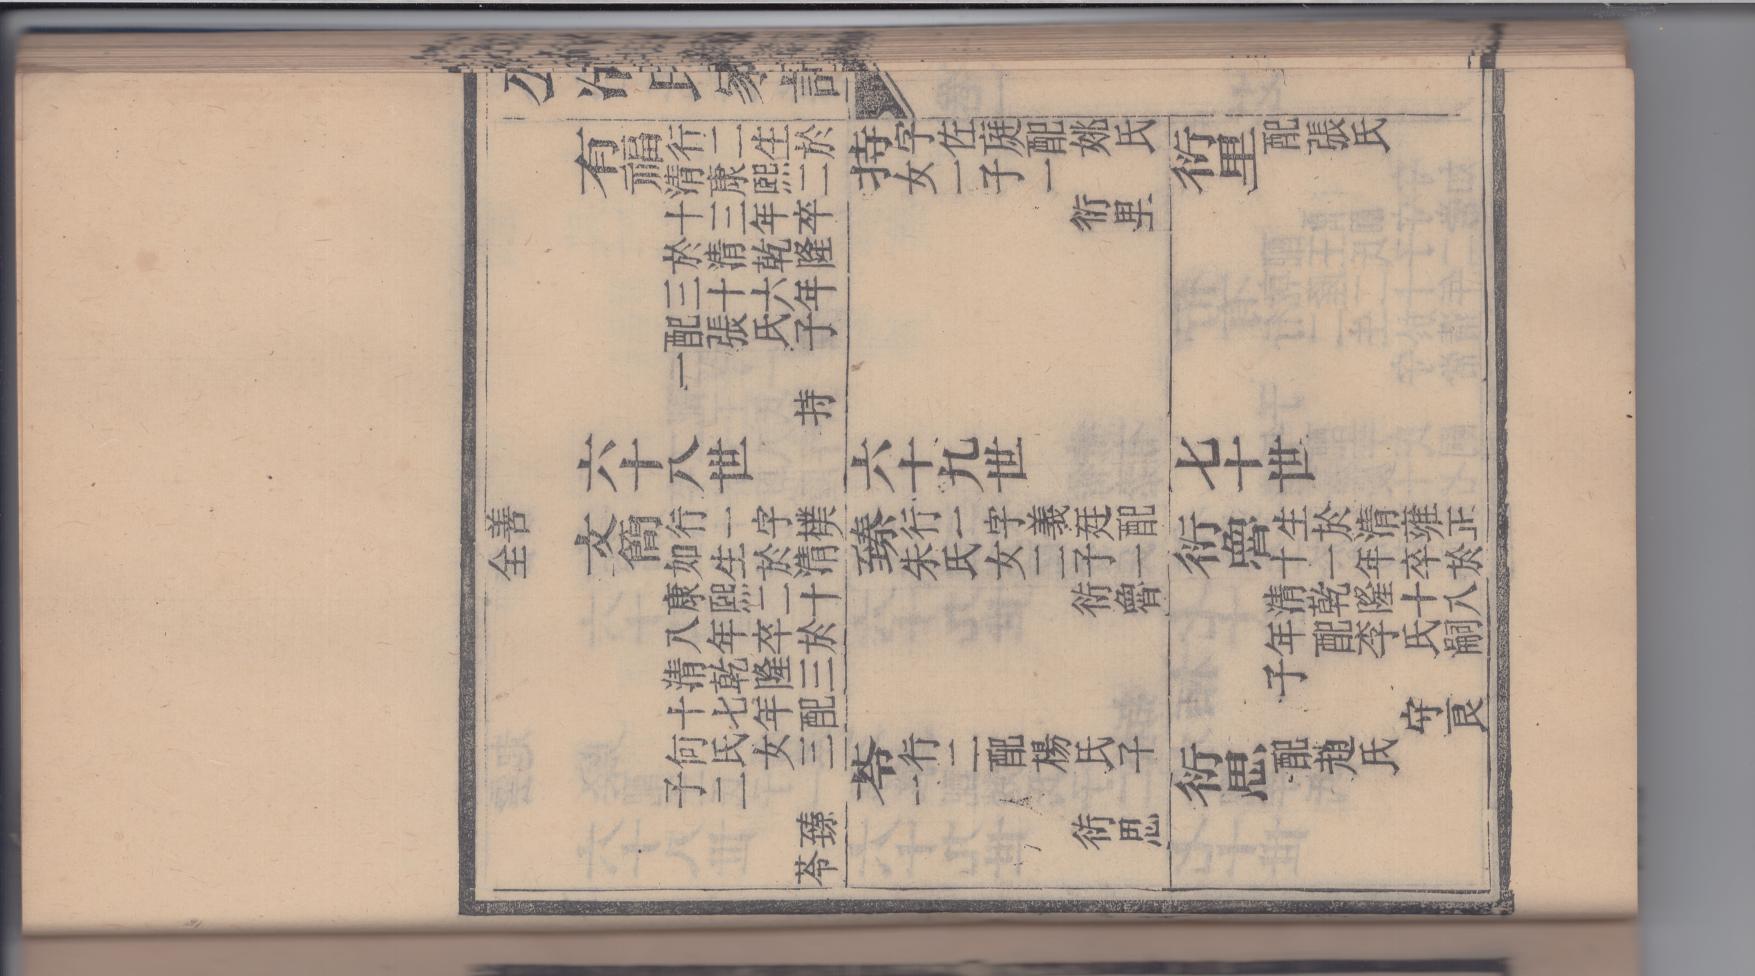 公冶氏家譜
有福
行一生於
清康熙二
十三年卒
於清乾隆
三十六年
配張氏子
一
持
持
字佐庭配姚氏
女二子一
衍里
衍里
配張氏
六十八世
六十九世
七十世
善全
文簡
行一字樸
如生於清
康熙二十
八年卒於
清乾隆三
十七年配
何氏女三
子二
臻
苓
臻
行一字義廷配
朱氏女二子一
衍魯
苓
行二配楊氏子
一
衍思
衍魯
生於清雍正
十一年卒於
清乾隆十八
年配李氏嗣
子
守良
衍思
配趙氏